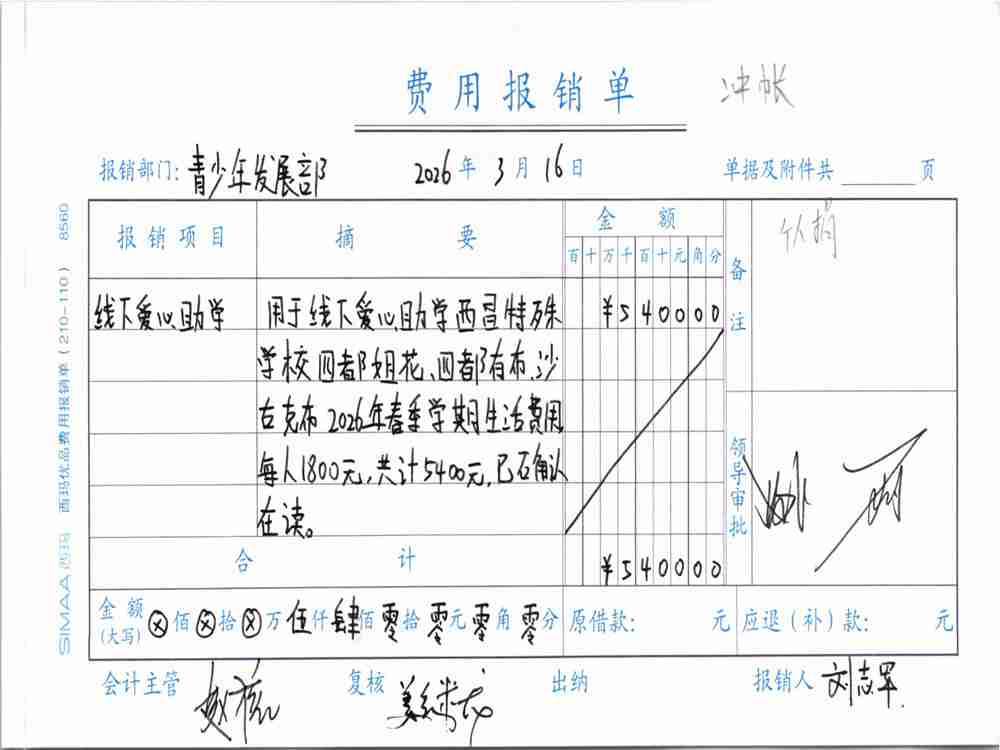 费用报销单 冲帐
报销部门: 青少年发展部 2026年3月16日 单据及附件共 页
报销项目 摘要 金额 备注 个人捐
百十万千百十元角分
线下爱心助学 用于线下爱心助学西昌特殊 ¥540000
学校四者阝姐花、四者阝有布、沙
古克布2026年春季学期生活费用,
每人1800元,共计5400元,已石确认
在读。
领导审批
合计 ¥540000
金额(大写) ⊗佰⊗拾⊗万伍仟肆佰零拾零元零角零分 原借款: 元 应退(补)款: 元
会计主管 复核 出纳 报销人 刘志军
SIMAA西玛 西玛优品费用报销单(210-110) 8560